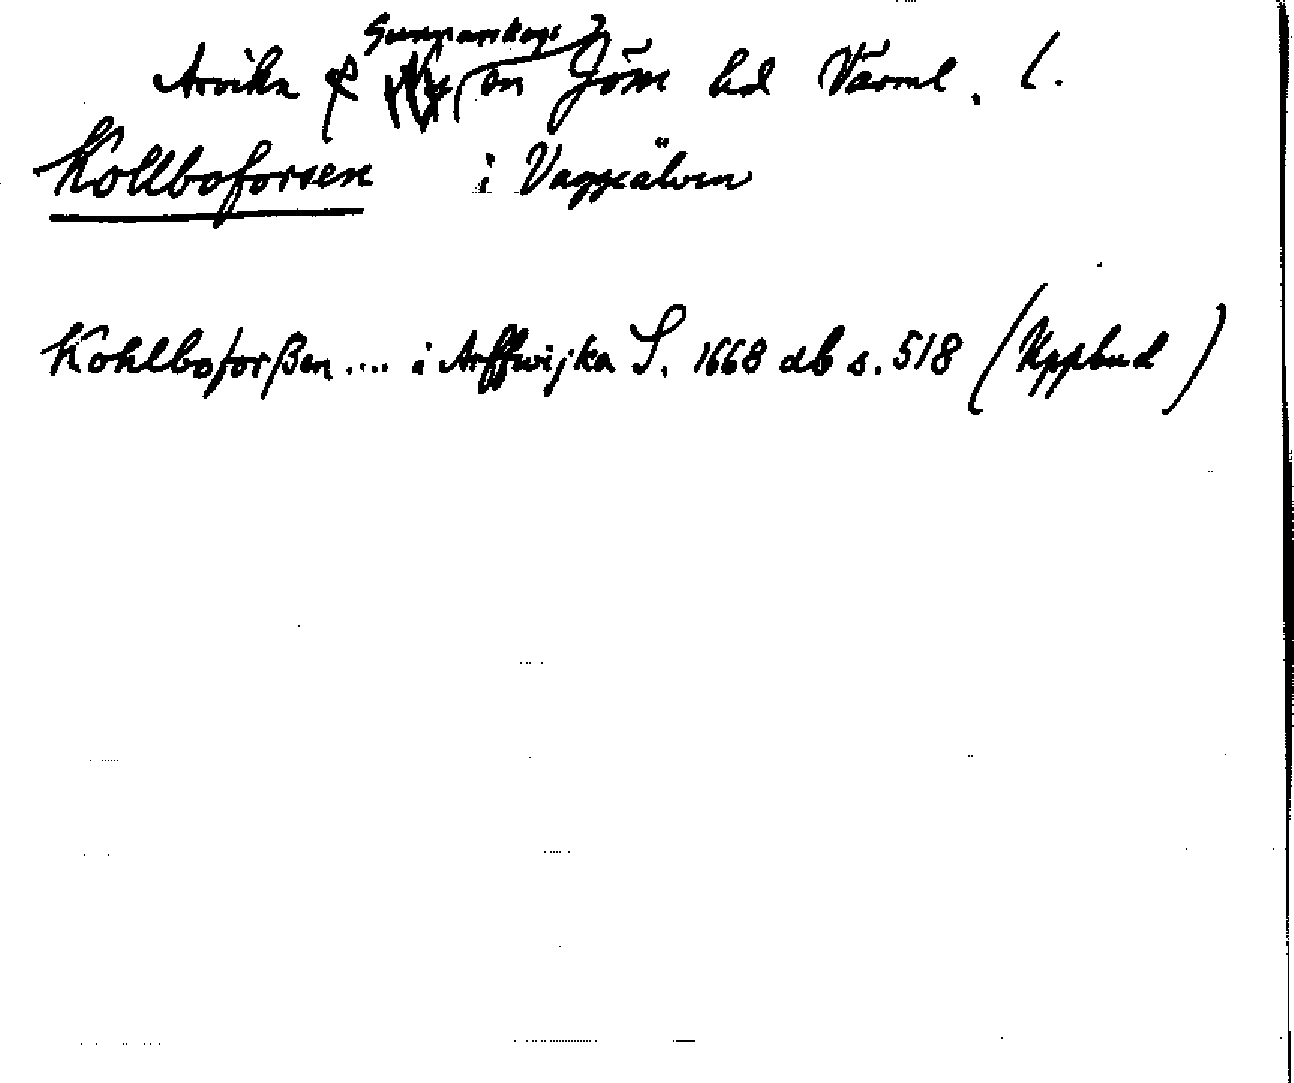 Gunnarskogs
Arvika & en Jöss hd Värml. l.
Kollboforsen i Vaggeälven
Kohlboforßen .... i Arffwijka S. 1668 db s. 518 (Uppbud)